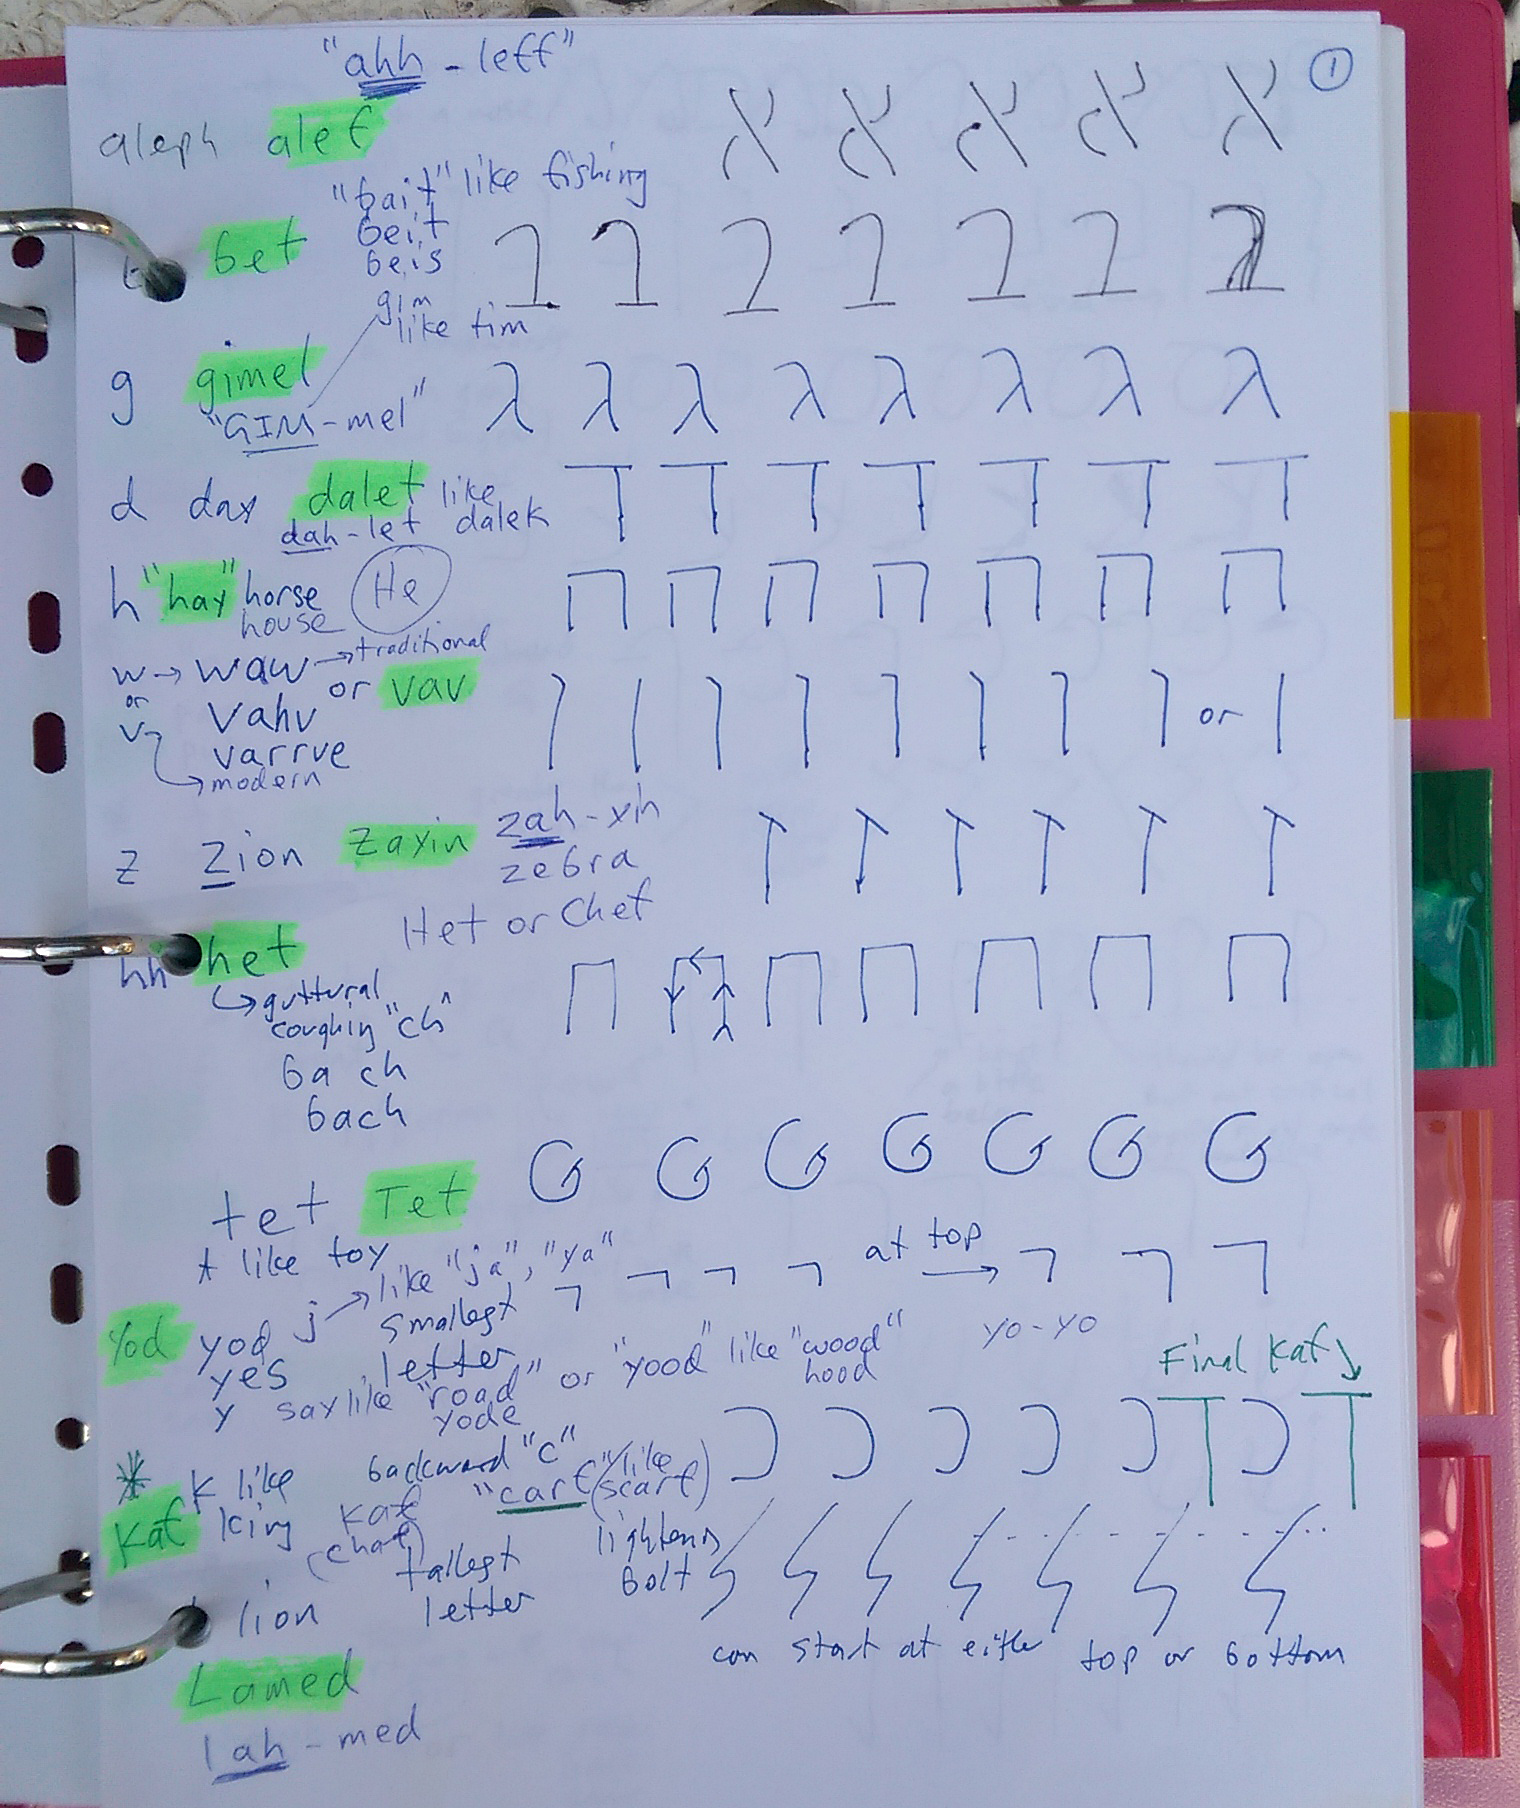 "ahh - leff"
①
aleph alef א א א א א
"bait" like fishing
bet beit ב ב ב ב ב ב ב
beis
gim
like tim
g gimel ג ג ג ג ג ג ג ג
"GIM-mel"
d day dalet like ד ד ד ד ד ד ד
dah-let dalek
h "hay" horse He ה ה ה ה ה ה ה
house
w → waw → traditional
or or vav ו ו ו ו ו ו ו ו or ו
v vahv
varrve
→ modern
z Zion zayin zah-yin ז ז ז ז ז ז
zebra
Het or Chet
hh het ח ח ח ח ח ח ח
→ guttural
coughing "ch"
ba ch
bach
tet Tet ט ט ט ט ט ט ט
t like toy
j → like "ja", "ya" י י י י at top → י י י
Yod yod smallest
yes letter yo-yo
y say like "road" or "yood" like "wood"
yode hood
Final Kaf ↓
* k like backward "c" כ כ כ כ כ ך כ ך
Kaf king kaf "carf" (like scarf)
(chaf)
lion tallest lightening ל ל ל ל ל ל ל
letter bolt
can start at either top or bottom
Lamed
lah-med